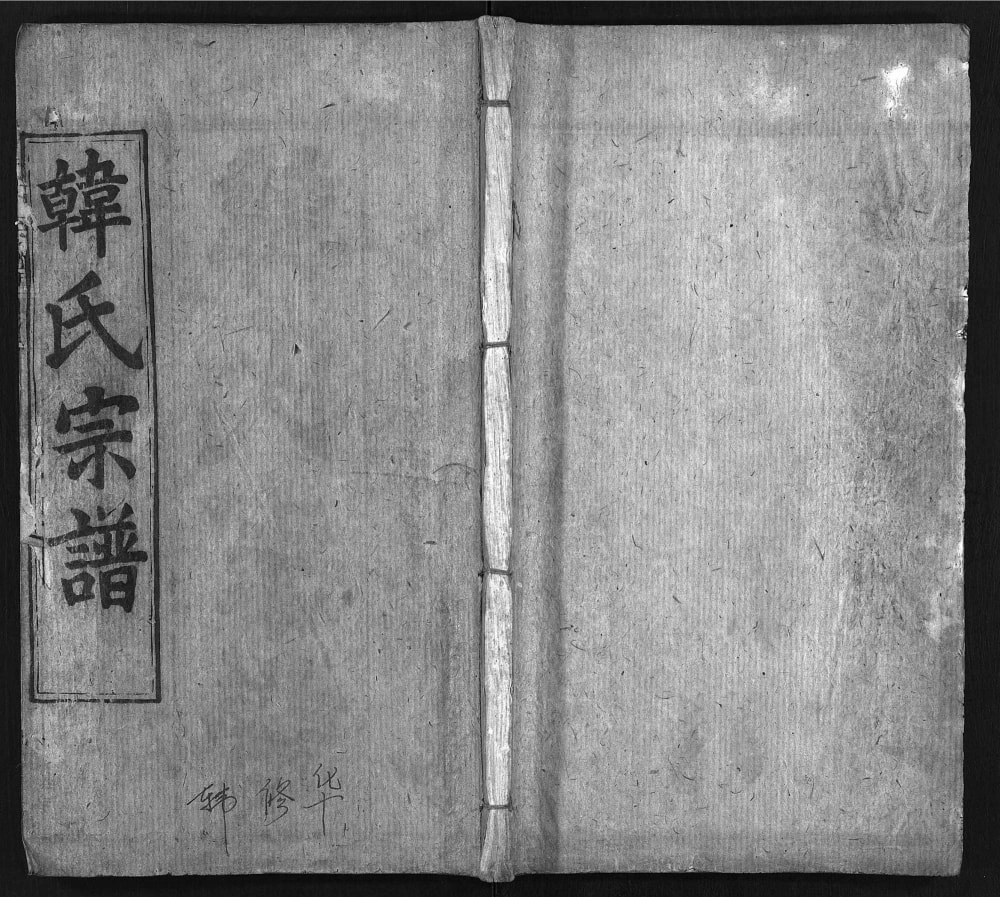 韓氏宗譜
韩修华